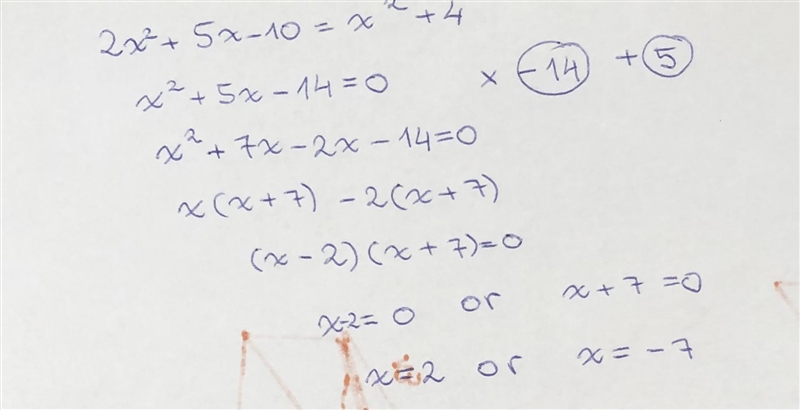 2x² + 5x - 10 = x² + 4
x² + 5x - 14 = 0 × -14 + 5
x² + 7x - 2x - 14 = 0
x(x + 7) - 2(x + 7)
(x - 2)(x + 7) = 0
x - 2 = 0 or x + 7 = 0
x = 2 or x = -7